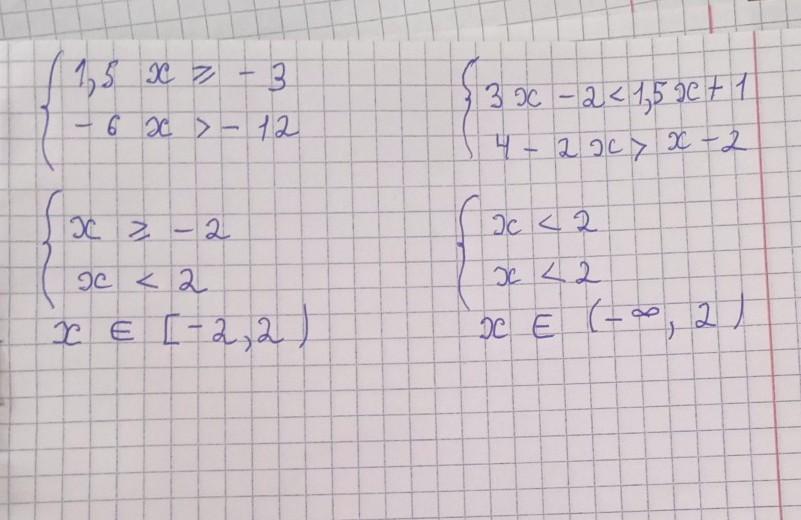 1,5 x ≥ -3
-6 x > -12
x ≥ -2
x < 2
x ∈ [-2,2)
3x - 2 < 1,5x + 1
4 - 2x > x - 2
x < 2
x < 2
x ∈ (-∞, 2)